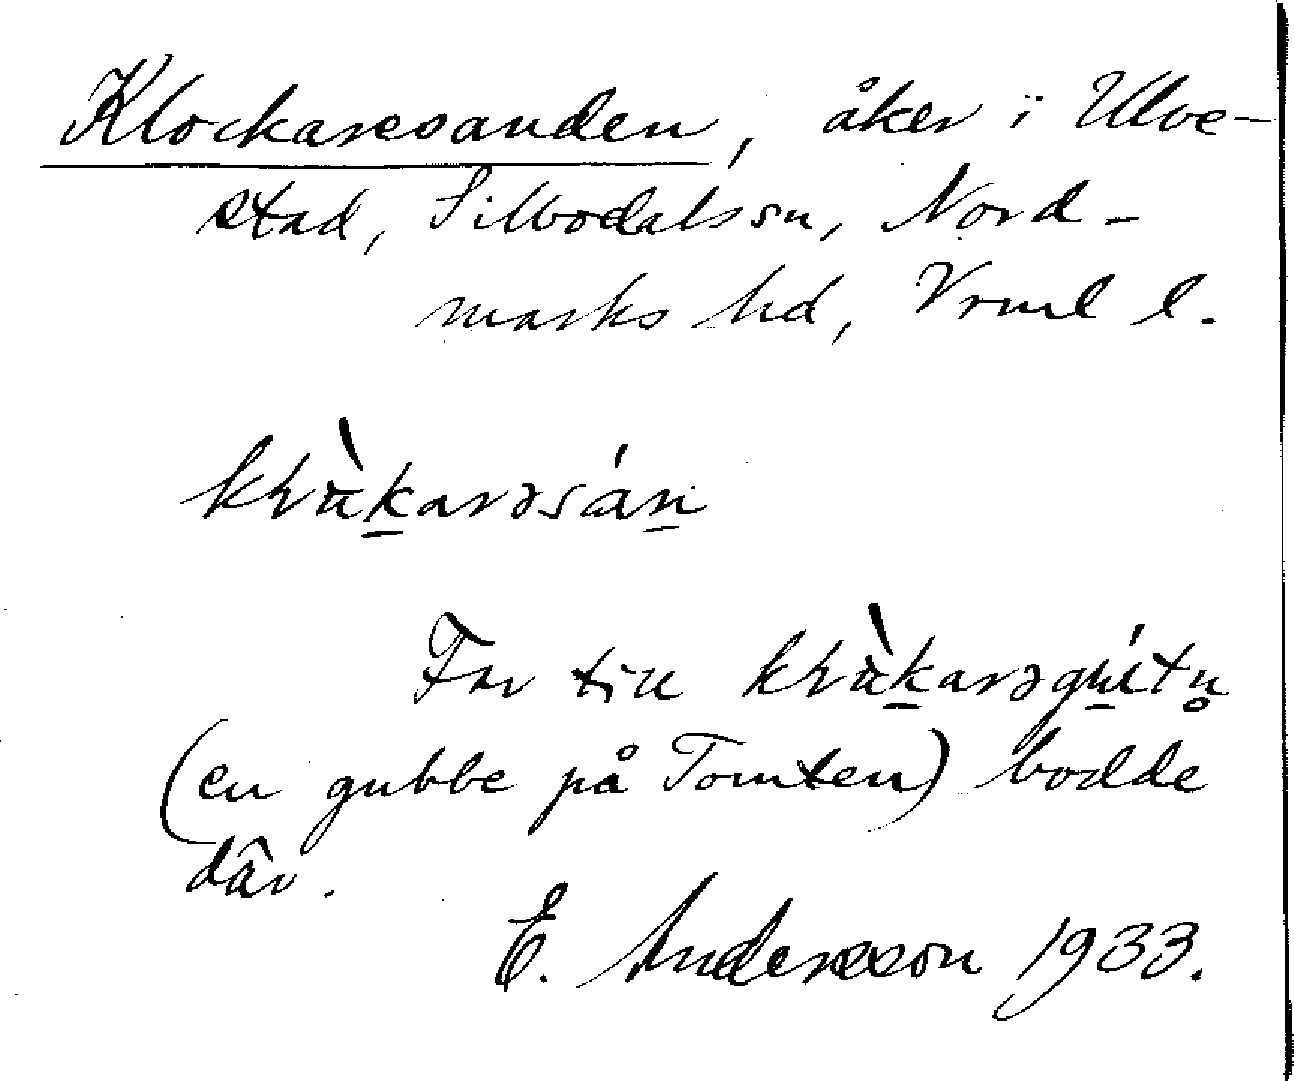 Klockaresanden, åker i Ulve-
stad, Silbodals sn, Nord-
marks hd, Vrml l.
Far till
(en gubbe på Tomten) bodde
där.
E. Andersson 1933.